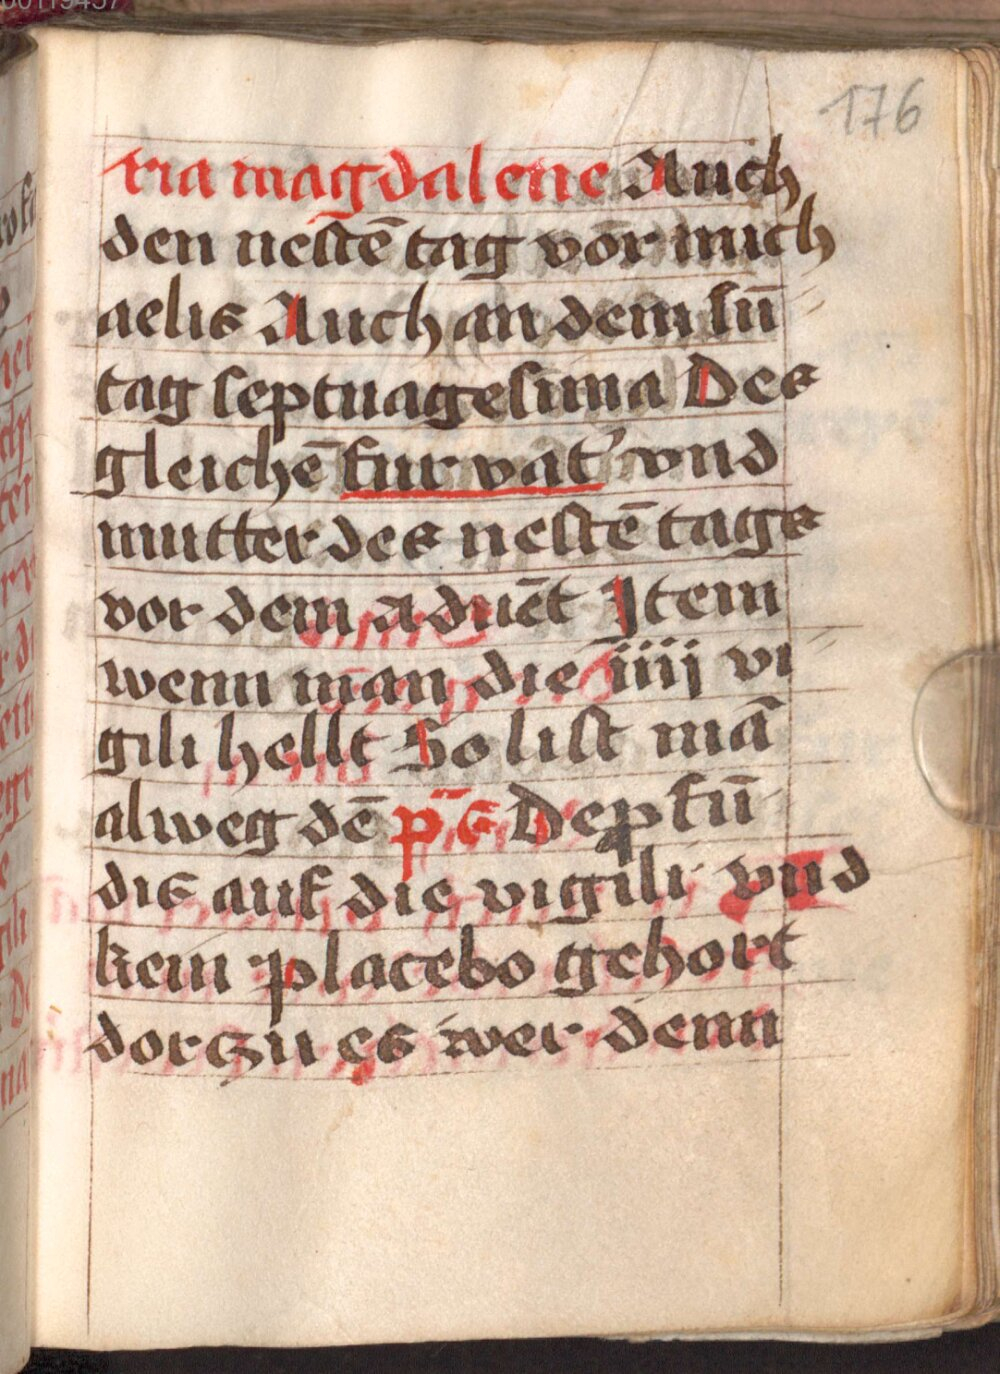 176
ria magdalene Auch
den nestē tag vor mich
aelis Auch an dem sū
tag septuagesima Des
gleichē fur vat' vnd
mutter des nestē tags
vor dem aduēt Item
wenn man die iiij vi
gili hellt So list mā
alweg dē p̄s Dep̱fū
dis auf die vigili vnd
kein placebo gehort
dorzu es wer denn